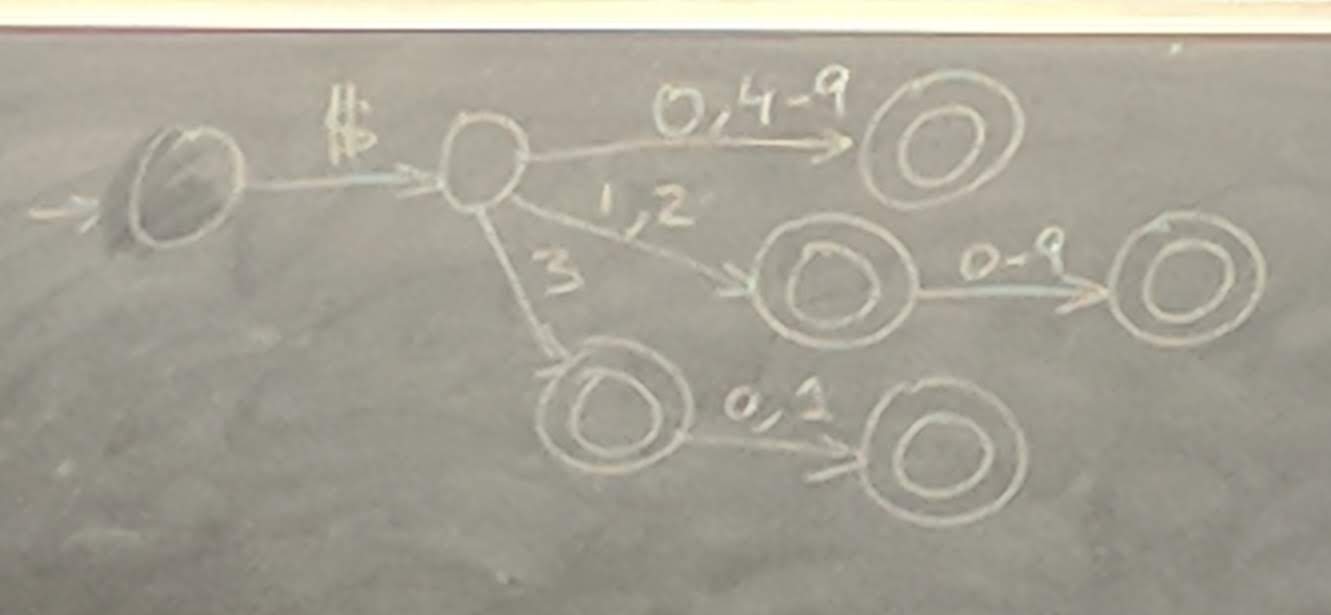 $
0,4-9
1,2
3
0-9
0,1